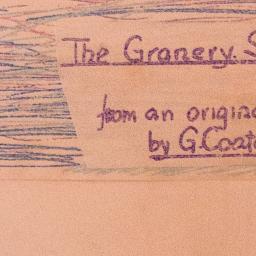 The Granery. S
from an origina
by G.Coat